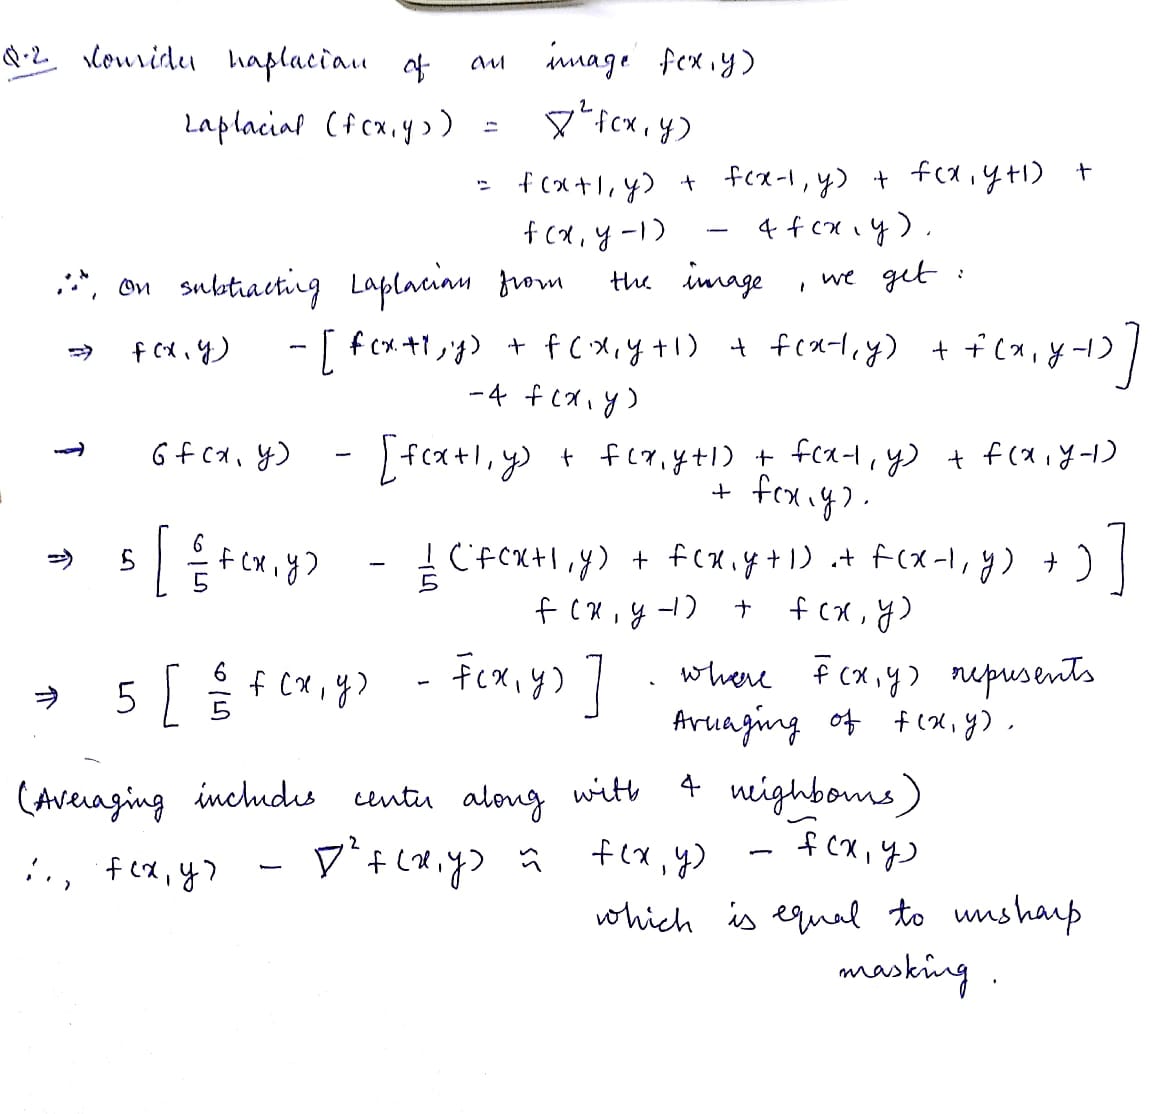 Q.2 Consider Laplacian of an image f(x,y)
Laplacial (f(x,y)) = ∇²f(x,y)
= f(x+1,y) + f(x-1,y) + f(x,y+1) +
f(x,y-1) - 4f(x,y).
∴, on subtracting Laplacian from the image, we get :
⇒ f(x,y) - [f(x+1,y) + f(x,y+1) + f(x-1,y) + f(x,y-1)]
-4 f(x,y)
→ 6f(x,y) - [f(x+1,y) + f(x,y+1) + f(x-1,y) + f(x,y-1)
+ f(x,y).
⇒ 5 [6/5 f(x,y) - 1/5 (f(x+1,y) + f(x,y+1) + f(x-1,y) + )]
f(x,y-1) + f(x,y)
⇒ 5 [6/5 f(x,y) - f̄(x,y)]. where f̄(x,y) repusents
Averaging of f(x,y).
(Averaging includes center along with 4 neighbours)
∴, f(x,y) - ∇²f(x,y) ≈ f(x,y) - f̄(x,y)
which is equal to unsharp
masking.